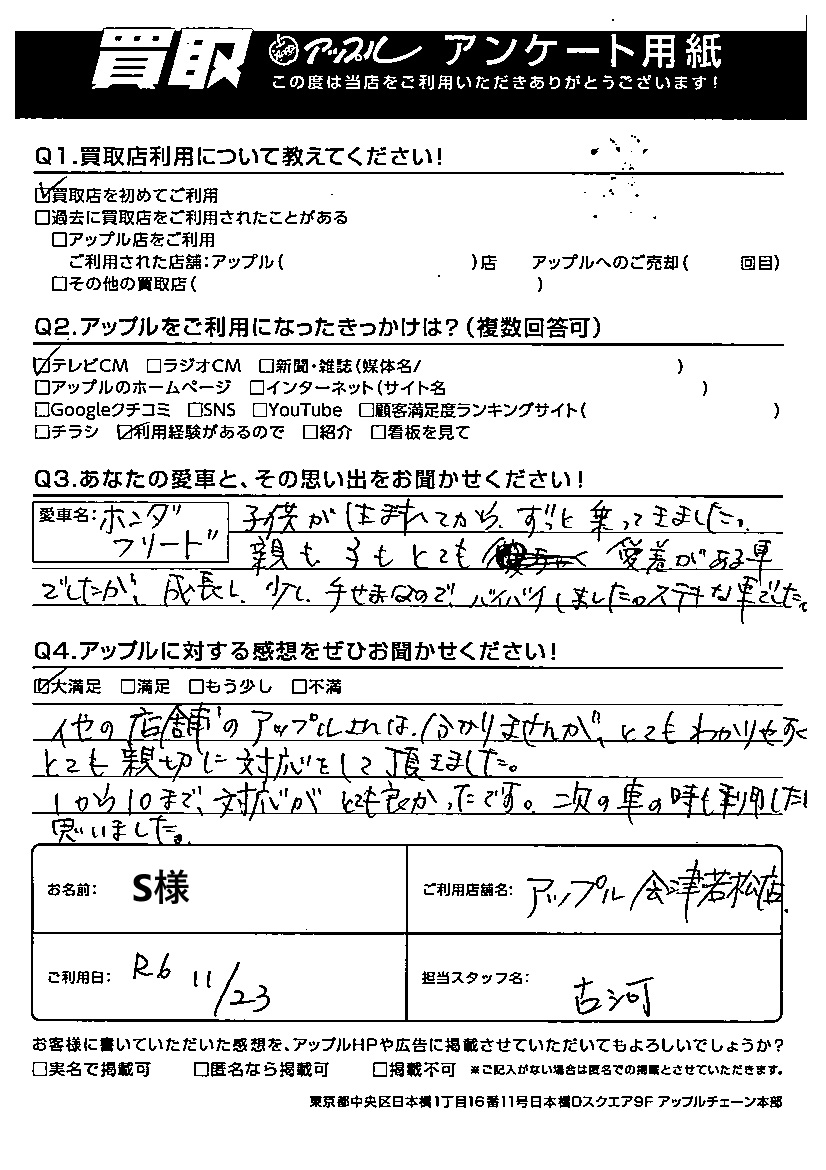 買取 アップル アンケート用紙
この度は当店をご利用いただきありがとうございます！
Q1.買取店利用について教えてください！
☑買取店を初めてご利用
□過去に買取店をご利用されたことがある
□アップル店をご利用
ご利用された店舗：アップル（ ）店 アップルへのご売却（ 回目）
□その他の買取店（ ）
Q2.アップルをご利用になったきっかけは？（複数回答可）
☑テレビCM □ラジオCM □新聞・雑誌（媒体名/ ）
□アップルのホームページ □インターネット（サイト名 ）
□Googleクチコミ □SNS □YouTube □顧客満足度ランキングサイト（ ）
□チラシ ☑利用経験があるので □紹介 □看板を見て
Q3.あなたの愛車と、その思い出をお聞かせください！
愛車名：ホンダ フリード
子供が生まれてから、ずっと乗ってきました。
親も子もとても 愛着がある車
でしたが、成長し、少し、手ぜまなので、バイバイしました。ステキな車でした。
Q4.アップルに対する感想をぜひお聞かせください！
☑大満足 □満足 □もう少し □不満
他の店舗のアップルさんは、分かりませんが、とてもわかりやすく
とても親切に対応をして頂きました。
1から10まで、対応がとても良かったです。次の車の時も利用したい
思いました。
お名前： S様
ご利用店舗名： アップル会津若松店
ご利用日： R6 11/23
担当スタッフ名： 古河
お客様に書いていただいた感想を、アップルHPや広告に掲載させていただいてもよろしいでしょうか？
□実名で掲載可 □匿名なら掲載可 □掲載不可 ※ご記入がない場合は匿名での掲載とさせていただきます。
東京都中央区日本橋1丁目16番11号日本橋Dスクエア9F アップルチェーン本部